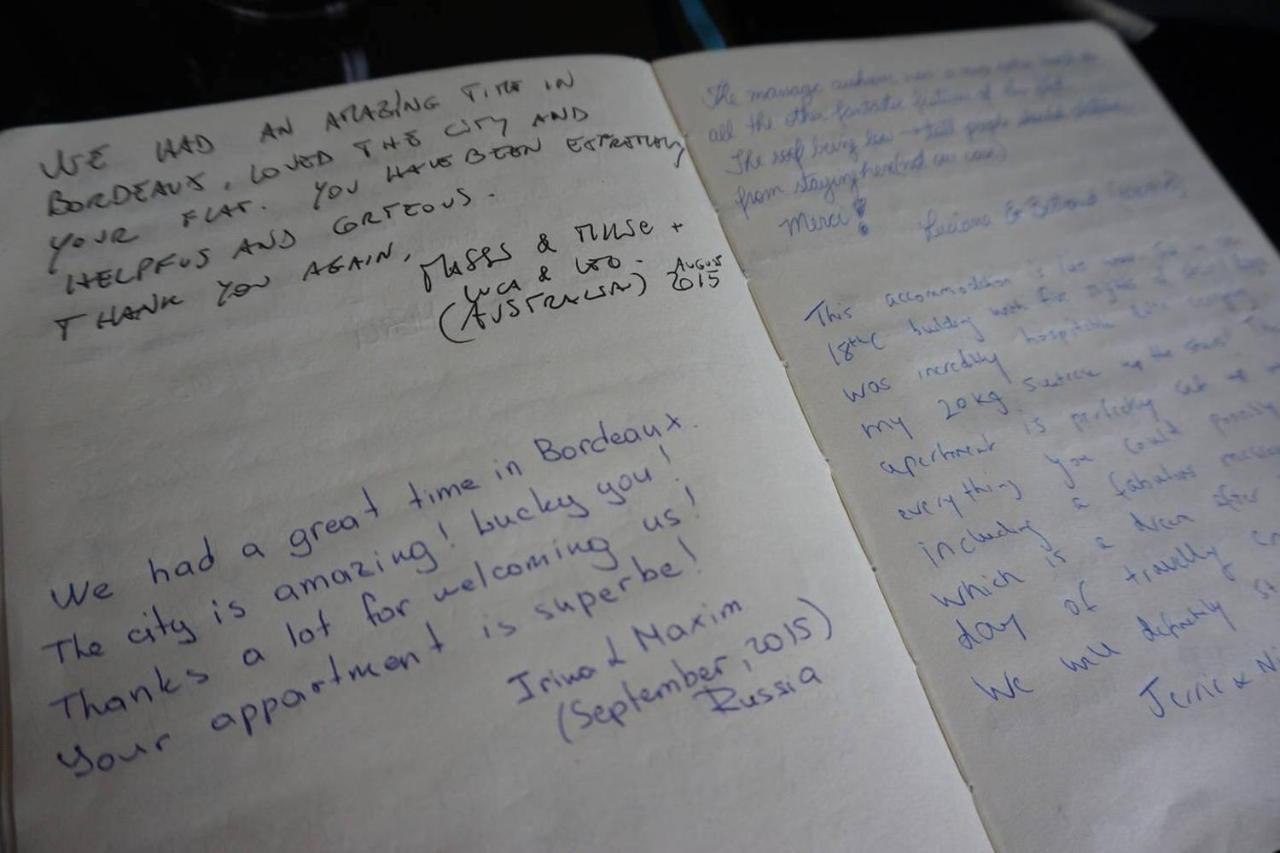 WE HAD AN AMAZING TIME IN
BORDEAUX. LOVED THE CITY AND
YOUR FLAT. YOU HAVE BEEN EXTREMELY
HELPFUL AND CORTEOUS.
THANK YOU AGAIN.
& +
LUCA & LEO.
(AUSTRALIA) AUGUST 2015
We had a great time in Bordeaux.
The city is amazing! Lucky you!
Thanks a lot for welcoming us!
Your appartment is superbe!
Irina & Maxim
(September, 2015)
Russia
The massage was a
all the other fantastic of the flat.
The roof being low → tall people should
from staying here (not our case)
Merci!
This accommodation is
18thC building with five flights of
was incredibly hospitable
my 20kg suitcase up the stairs!
apartment is perfectly set up
everything you could possibly
including a fabulous massage
which is a dream after
day of travelling
We will definitely
Jerrie &